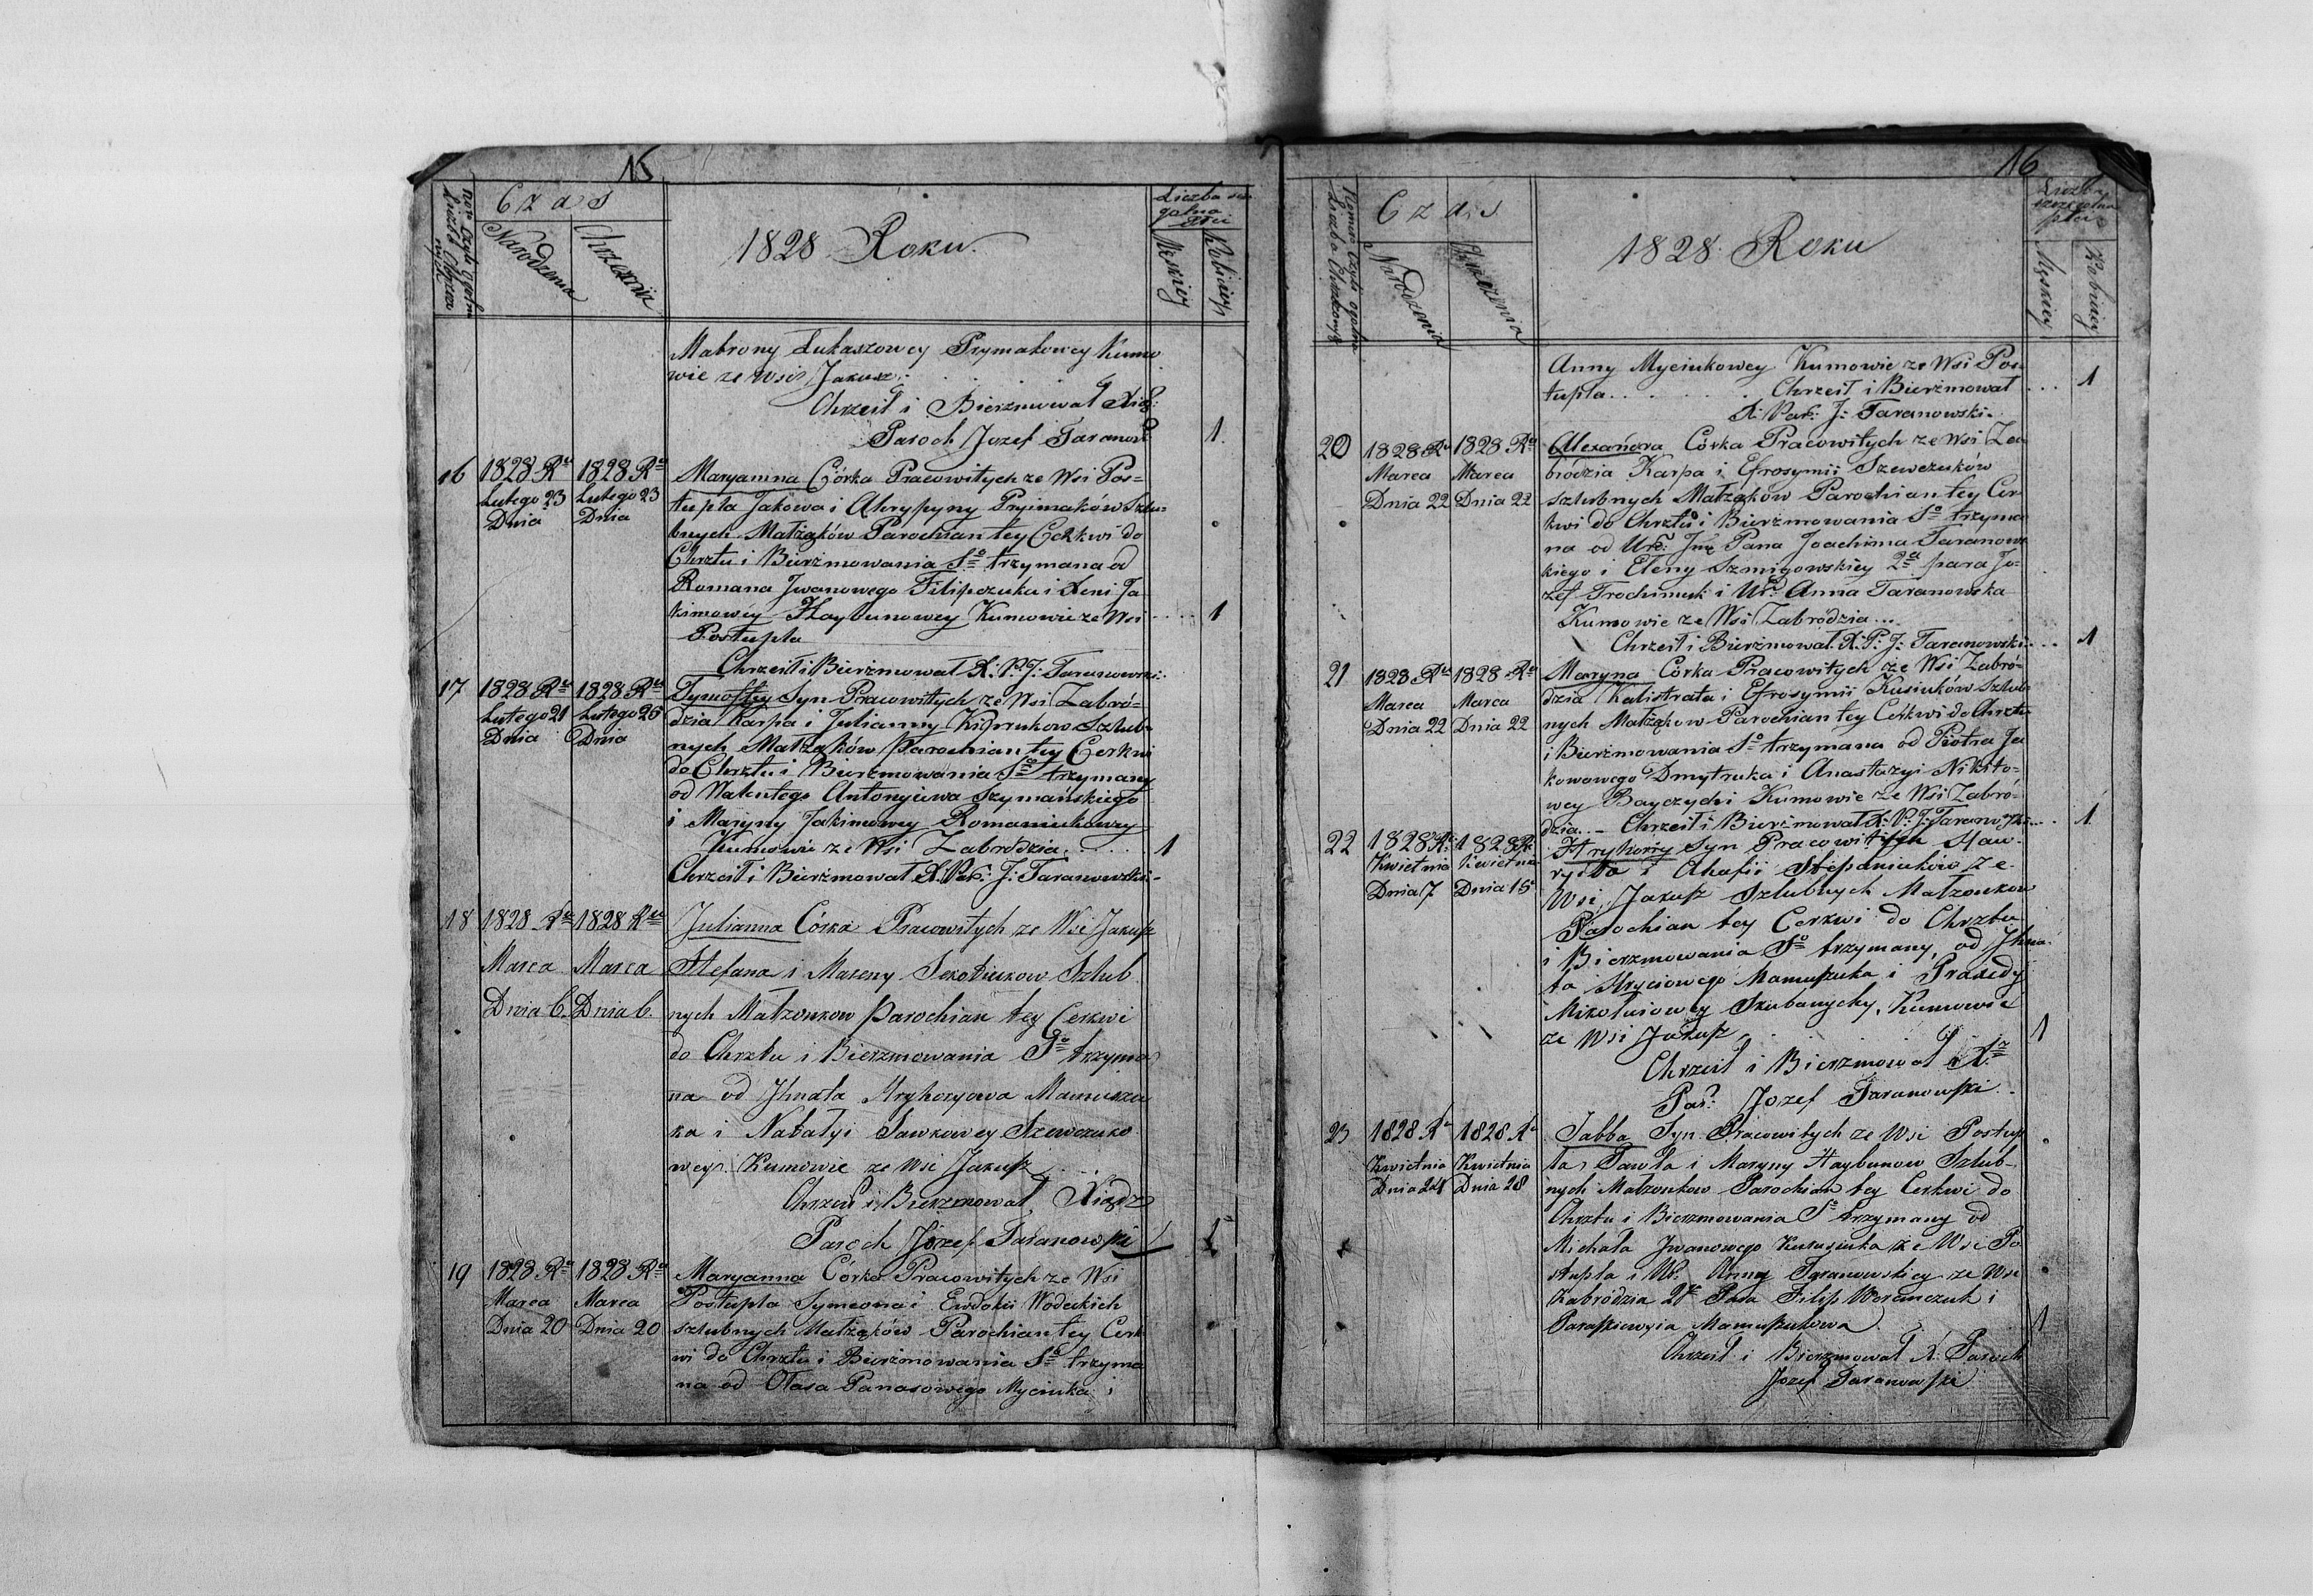 15
Czas
Narodzenia
Chrzczenia
1828 Roku.
Liczba
Męskiey
Kobiecey
Matrony Łukaszowey Prymakowey Kumo
wie ze wsi Jakusz
Chrzcił i Bierzmował Xiądz
Paroch Jozef Taranows
1.
16
1828 Ru
Lutego 23
Dnia
1828 Ru
Lutego 23
Dnia
Maryanna Córka Pracowitych ze Wsi Pos=
tupla Jakowa i Ahrypyny Pryimaków Szlu-
bnych Małżąków Parochian tey Cerkwi do
Chrztu i Bierżmowania So trzymana od
Romana Jwanowego Filipczuka i Xeni Ja
kimowey Haybunowey Kumowie ze Wsi
Postupla
1
Chrzcił i Bierżmował X: P: J: Taranowski:
17
1828 Ru
Lutego 21
Dnia
1828 Ru
Lutego 26
Dnia
Tymofiey Syn Pracowitych ze Wsi Zabró=
dzia Karpa i Julianny Szlub-
nych Małżąków Parochian tey Cerkwi
do Chrztu i Bierżmowania So trzymany
od Walentego Antonjewa Szymańskiego
i Maryny Jakimowey Romaniukowey
Kumowie ze Wsi Zabródzia
1
Chrzcił i Bierżmował X. Par: J: Taranowski-
18
1828 Ru
Marca
Dnia 6.
1828 Ru
Marca
Dnia 6.
Julianna Córka Pracowitych ze Wsi Jakusz
Stefana i Mareny Szlub
nych Małzonkow Parochian tey Cerkwi
do Chrztu i Bierzmowania So trzyma
na od Jhnata Hryhoryowa Mamusza
ka i Natalyi Sawkowey Szewczuko
wey. Kumowie ze wsi Jakusz
Chrzcił i Bierzmował Xiądz
Paroch Józef Taranowski
1
19
1828 Ru
Marca
Dnia 20
1828 Ru
Marca
Dnia 20
Maryanna Córka Pracowitych ze Wsi
Postupla Symeona i Ewdokii Wodeckich
szlubnych Małżąków Parochian tey Cerk
wi do Chrztu i Bierżmowania So trzyma
na od Ołasa Panasowego Myciuka i
16
Czas
Narodzenia
Chrzczenia
1828 Roku
Liczba
szczegolna
płci
Męskiey
Kobiecey
Anny Myciukowey Kumowie ze Wsi Pos-
tupla Chrzcił i Bierżmował
X: Par: J: Taranowski.
1
20
1828 Ru
Marca
Dnia 22
1828 Ru
Marca
Dnia 22
Alexandra Córka Pracowitych ze Wsi Za
bródzia Karpa i Efrosymii Szewczuków
szlubnych Małżąków Parochian tey Cer
kwi do Chrztu i Bierżmowania So trzyma
na od Pana Joachima Taranows
kiego i Eleny Szmigowskiey 2a para Jo=
zef Trochimuk i Ur: Anna Taranowska
Kumowie ze Wsi Zabródzia...
Chrzcił i Bierżmował X: P: J: Taranowski:
1
21
1828 Ru
Marca
Dnia 22
1828 Ru
Marca
Dnia 22
Maryna Córka Pracowitych ze Wsi Zabró-
dzia Kalistrata i Efrosymii Kusiuków Szlub-
nych Małżąkow Parochian tey Cerkwi do Chrztu
i Bierżmowania So trzymana od Piotra Ja
kowowego Dmytruka i Anastazyi Nikito=
wey Bayczychi Kumowie ze Wsi Zabró-
dzia..- Chrzcił i Bierżmował X: P: J: Taranowski
1
22
1828 R:
Kwietnia
Dnia 7
1828 R:
Kwietnia
Dnia 15
Hryhoriy Syn Pracowitych Haw-
ryła i Ahafii Stepaniuków ze
Wsi Jakusz Szlubnych Małzonkow
Parochian tey Cerkwi do Chrztu
i Bierzmowania So trzymany, od Jhna-
ta Hryciowego Mamuszuka i Praxedy
Mikołaiowey Szubanychy, Kumowie
ze Wsi Jakusz
1
Chrzcił i Bierzmował X:
Par: Jozef Taranowski.
23
1828 Ru
Kwietnia
Dnia 24
1828 Ru
Kwietnia
Dnia 28
Sabba Syn Pracowitych ze Wsi Postup
la Pawła i Maryny Haybunow Szlub-
nych Małzonkow Parochian tey Cerkwi do
Chrztu i Bierzmowania So trzymany od
Michała Jwanowego ze Wsi Po
stupla i Ur: Anny Taranowskiey ze Wsi
Zabródzia 2a Para Filip Weremczuk i
Paraskiewyia Mamuszukowa
1
Chrzcił i Bierzmował X: Paroch
Jozef Taranowski